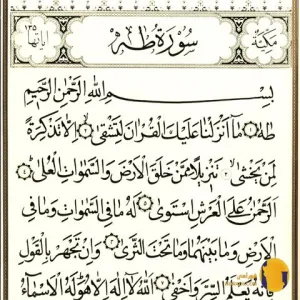 مكية سورة طه آياتها ١٣٥
بسم الله الرحمن الرحيم
طه ۝١ ما أنزلنا عليك القرآن لتشقى ۝٢ إلا تذكرة
لمن يخشى ۝٣ تنزيلا ممن خلق الأرض والسموات العلى ۝٤
الرحمن على العرش استوى ۝٥ له ما في السموات وما في
الأرض وما بينهما وما تحت الثرى ۝٦ وإن تجهر بالقول
فإنه يعلم السر وأخفى ۝٧ الله لا إله إلا هو له الأسماء